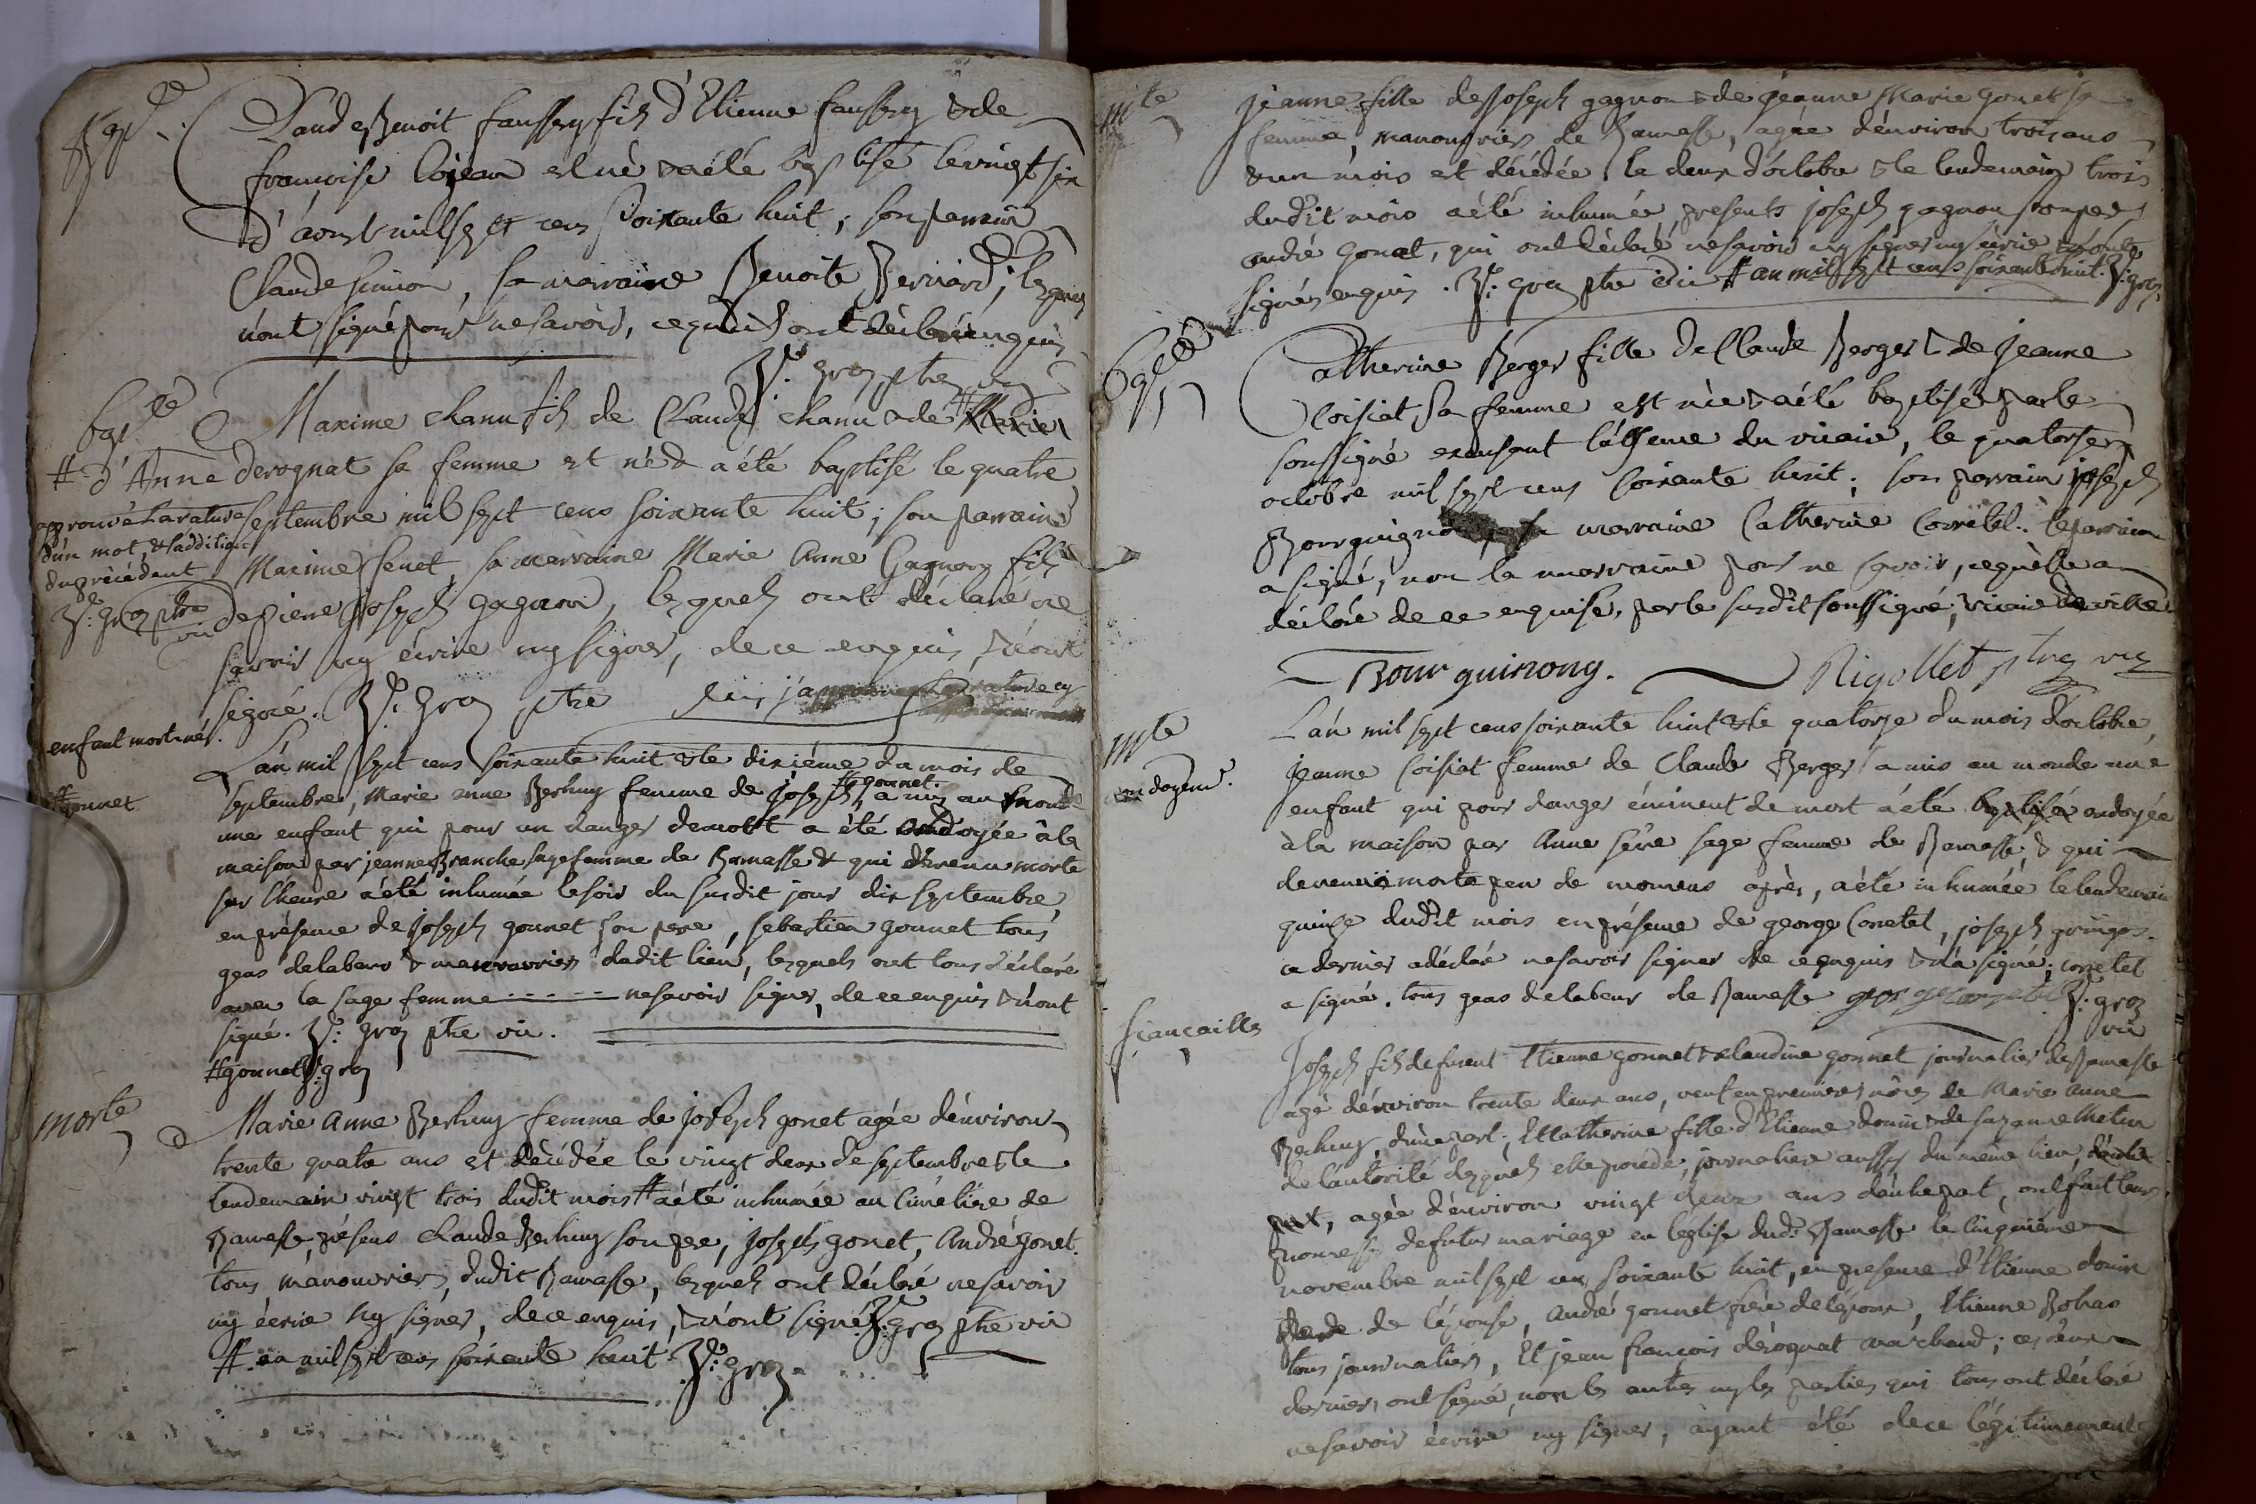 Bapt.
Claude Benoit faussery fils d'Etienne faussery & de
françoise Cojean est né & a été baptisé le vingt six
d'aoust mil sept cens soixante huit ; son parrain
Claude simion, sa marraine Benoite Bernard ; lesquels
n'ont signé pour ne savoir, ce qu'ils ont déclaré enquis
Bd: groz ptre
bapt.
Maxime chanu fils de Claude chanu & de # Marie
# d'Anne derognat sa femme est né & a été baptisé le quatre
approuvé la rature
d'un mot, & l'addition
du précédent
Bd: groz ptre vic
septembre mil sept cens soixante huit ; son parrain
Maxime senet, sa marraine Marie Anne Gagnon fille
de pierre joseph gagnon, lesquels ont déclaré ne
savoir ny écrire ny signer, de ce enquis, & n'ont
signé. Bd: Groz ptre
enfant mort né.
L'an mil sept cens soixante huit & le dixième du mois de
# gonnet
septembre, Marie anne Berhuy femme de joseph # gonnet, a mis au monde
une enfant qui pour un danger de mort a été ondoyée à la
maison par jeanne Branche sage femme de Ramasse & qui devenue morte
sur l'heure a été inhumée le soir du susdit jour dix septembre
en présence de joseph gonnet son pere, sebastien gonnet tous
gens de labeur & manouvriers dudit lieu, lesquels ont tous déclaré
avec la sage femme - - - - ne savoir signer, de ce enquis & n'ont
signé. Bd: groz ptre vic.
# gonnet Bd: groz
morte
Marie Anne Berhuy femme de joseph gonet agée d'environ
trente quatre ans est décédée le vingt deux de septembre & le
lendemain vingt trois dudit mois # a été inhumée au cimetière de
Ramasse, présens claude Berhuy son pere, joseph gonet, André gonet.
tous manouvriers dudit Ramasse, lesquels ont déclaré ne savoir
ny écrire ny signer, de ce enquis, & n'ont signé Bd: groz ptre vic
# an mil sept cens soixante huit Bd: groz
mte
jeanne fille de joseph gagnon & de jeanne Marie gonet sa
femme, manouvriers de Ramasse, agée d'environ trois ans
& un mois est décédée le deux d'octobre & le lendemain trois
dudit mois a été inhumée, presents joseph gagnon son pere
andré gonet, qui ont déclaré ne savoir ny signer ny écrire & n'ont
signé enquis. Bd: groz ptre vic # an mil sept cens soixante huit Bd: groz
Bapt.
Catherine Berger fille de Claude Berger & de Jeanne
Coisiat sa femme est née & a été baptisée par le
soussigné en l'absence du vicaire, le quatorze
octobre mil sept cens soixante huit ; son parrain joseph
Bourguignon sa marraine Catherine Corretel. le parrain
a signé, non la marraine pour ne savoir, ce qu'elle a
déclaré de ce enquise, par le susdit soussigné, vicaire
Bourguinong. Rigollet ptre vic
mte
ondoyement.
L'an mil sept cens soixante huit & le quatorze du mois d'octobre,
jeanne Coisiat femme de Claude Berger a mis au monde une
enfant qui pour danger éminent de mort a été baptisée ondoyée
à la maison par Anne sève sage femme de Ramasse, & qui
devenue morte peu de momens après, a été inhumée le lendemain
quinze dudit mois en présence de george Corretel, joseph gringos.
ce dernier a déclaré ne savoir signer de ce enquis & n'a signé ; corretel
a signé. tous gens de labeur de Ramasse george corretel Bd: groz
vic
fiançailles
Joseph fils de furent Etienne gonnet & claudine gonnet journalier de Ramasse
agé d'environ trente deux ans, veuf en premieres nôces de Marie Anne
Berhuy d'une part ; Et Catherine fille d'Etienne donin & de suzanne
de l'autorité desquels elle procède, journaliere aussy du même lieu,
part, agée d'environ vingt deux ans d'autre part, ont fait leurs
promesses de futur mariage en l'eglise dudt Ramasse le cinquième
novembre mil sept cens soixante huit, en presence d'Etienne donin
de l'épouse, André gonnet frère de l'époux, Etienne Bohas
tous journaliers, Et jean françois dérognat marchand ; ces deux
derniers ont signé, non les autres ny les parties qui tous ont déclaré
ne savoir écrire ny signer, ayant été de ce légitimement